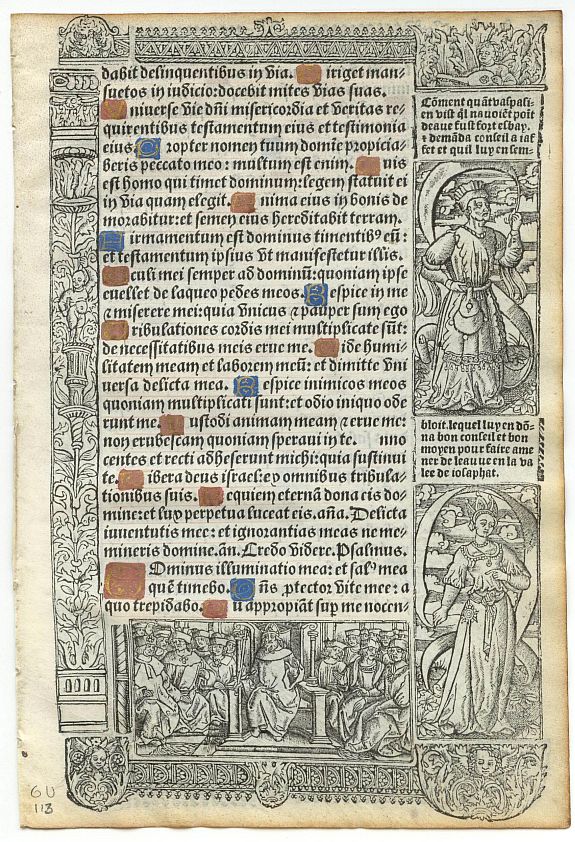 dabit delinquentibus in via. iriget man-
suetos in iudicio: docebit mites vias suas.
niverse vie dñi misericordia et veritas re-
quirentibus testamentum eius et testimonia
eius. ropter nomen tuum domine propicia-
beris peccato meo: multum est enim. uis
est homo qui timet dominum: legem statuit ei
in via quam elegit. nima eius in bonis de
morabitur: et semen eius hereditabit terram.
irmamentum est dominus timentibꝰ eū:
et testamentum ipsius vt manifestetur illis.
culi mei semper ad dominū: quoniam ipse
euellet de laqueo pedes meos. espice in me
⁊ miserere mei: quia vnicus ⁊ pauper sum ego
ribulationes cordis mei multiplicate sūt:
de necessitatibus meis erue me. ide humi-
litatem meam et laborem meū: et dimitte vni
uersa delicta mea. espice inimicos meos
quoniam multiplicati sunt: et odio iniquo ode
runt me. ustodi animam meam ⁊ erue me:
non erubescam quoniam speraui in te. nno
centes et recti adheserunt michi: quia sustinui
te. ibera deus israel: ex omnibus tribula-
tionibus suis. equiem eternā dona eis do-
mine: et lux perpetua luceat eis. aña. Delicta
iuuentutis mee: et ignorantias meas ne me-
mineris domine. añ. Credo videre. Psalmus.
Dminus illuminatio mea: et salꝰ mea
quē timebo. ñs ꝓtector vite mee: a
quo trepidabo. u appropiāt sup me nocen
Cōment quāt vaspasi-
en vist q̄l nauoiēt poīt
deaue fust fort esbay.
⁊ demāda conseil a iaf
fet et quil luy en sem-
bloit. lequel luy en dō-
na bon conseil et bon
moyen pour faire ame
ner de leaue en la va
lee de iosaphat.
6U
113